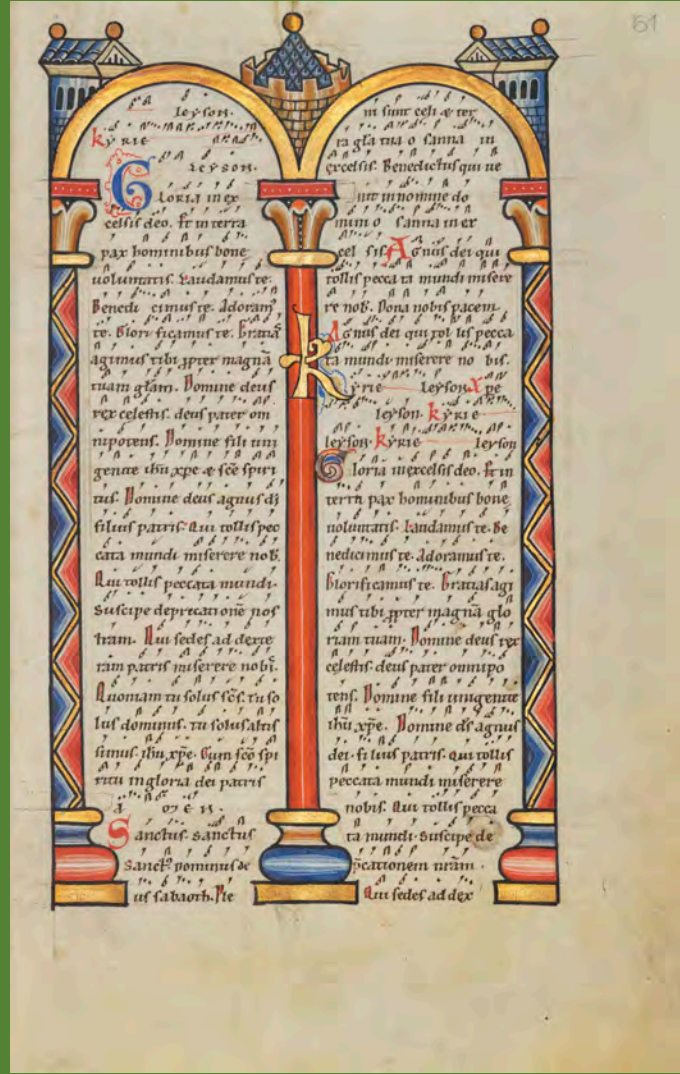 51
leyson.
kyrie
leyson.
Gloria in ex
celsis deo. Et in terra
pax hominibus bone
uoluntatis. Laudamus te.
Benedi cimus te. Adoram᷒
te. Glori ficamus te. Gratiā
agimus tibi ꝓpter magnā
tuam glam̄. Domine deus
rex celestis. deus pater om
nipotens. Domine fili uni
genite ihu xp̄e & sc̄e spiri
tus. Domine deus agnus di
filius patris. Qui tollis pec
cata mundi miserere nob.
Qui tollis peccata mundi.
Suscipe deprecationē nos
tram. Qui sedes ad dexte
ram patris miserere nobi.
Quoniam tu solus sc̄s. tu so
lus dominus. tu solus altis
simus. ihu xp̄e. Cum sc̄o spi
ritu in gloria dei patris
a men.
Sanctus. sanctus
Sanct᷒ dominus de
us sabaoth. Ple
ni sunt celi & ter
ra gla tua o sanna in
excelsis. Benedictus qui ue
nit in nomine do
mini o sanna in ex
cel sis Agnus dei qui
tollis pecca ta mundi misere
re nob. Dona nobis pacem.
Agnus dei qui tol lis pecca
ta mundi miserere no bis.
kyrie leyson xpe
leyson. kyrie
leyson. kyrie leyson
Gloria in excelsis deo. Et in
terra pax hominibus bone
uoluntatis. Laudamus te. Be
nedicimus te. Adoramus te.
Glorificamus te. Gratias agi
mus tibi ꝓpter magnā glo
riam tuam. Domine deus rex
celestis. deus pater omnipo
tens. Domine fili unigenite
ihu xp̄e. Domine ds̄ agnus
dei. filius patris. Qui tollis
peccata mundi miserere
nobis. Qui tollis pecca
ta mundi. Suscipe de
p̄cationem nr̄am.
Qui sedes ad dex